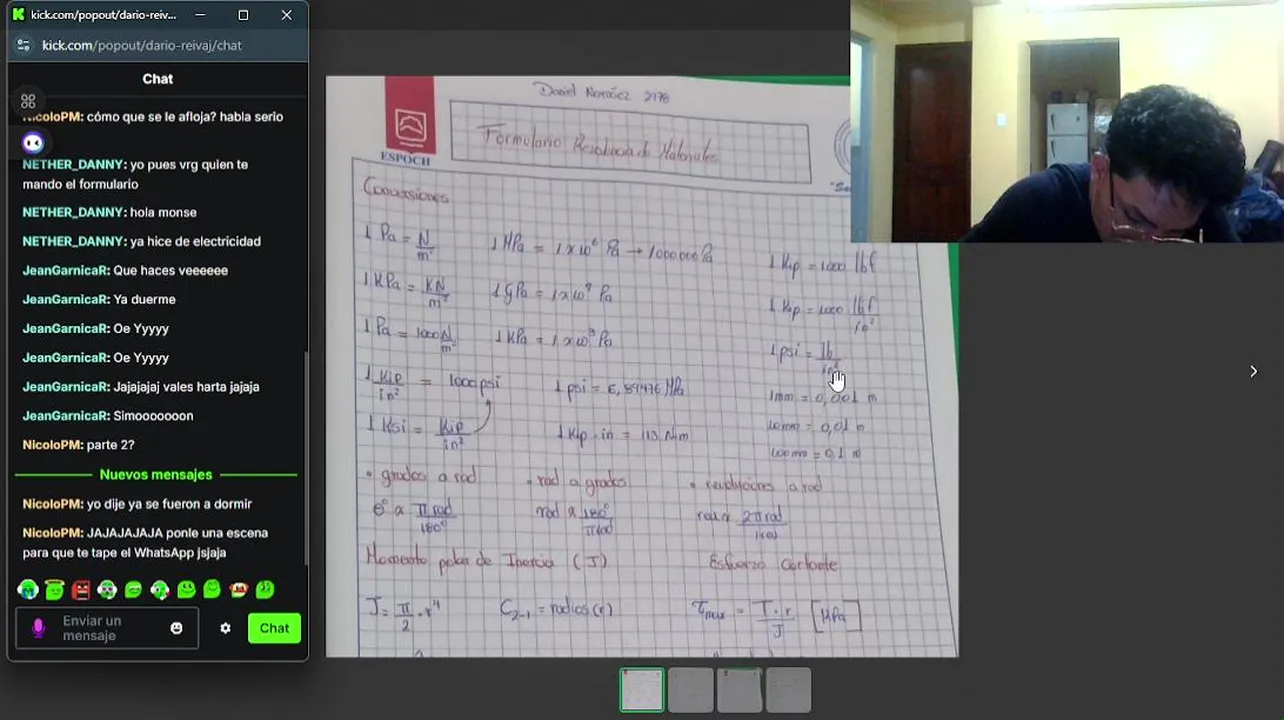 kick.com/popout/dario-reiv...
kick.com/popout/dario-reivaj/chat
Chat
NicoloPM: cómo que se le afloja? habla serio
NETHER_DANNY: yo pues vrg quien te
mando el formulario
NETHER_DANNY: hola monse
NETHER_DANNY: ya hice de electricidad
JeanGarnicaR: Que haces veeeeee
JeanGarnicaR: Ya duerme
JeanGarnicaR: Oe Yyyyy
JeanGarnicaR: Oe Yyyyy
JeanGarnicaR: Jajajajaj vales harta jajaja
JeanGarnicaR: Simooooooon
NicoloPM: parte 2?
Nuevos mensajes
NicoloPM: yo dije ya se fueron a dormir
NicoloPM: JAJAJAJAJA ponle una escena
para que te tape el WhatsApp jsjaja
Enviar un
mensaje
Chat
Daniel 2178
ESPOCH
Formulario Resistencia de Materiales
Conversiones
1 Pa = N/m² 1 MPa = 1x10⁶ Pa → 1000000Pa 1 Kip = 1000 lbf
1 KPa = KN/m² 1 GPa = 1x10⁹ Pa 1 Kip = 1000 lbf/in²
1 Pa = 1000 N/m² 1 KPa = 1x10³ Pa 1 psi = lb/in²
1 Kip/in² = 1000 psi 1 psi = 6,89476 MPa 1mm = 0,001 m
1 Ksi = Kip/in² 1 Kip·in = 113 Nm 10mm = 0,01 m
100mm = 0,1 m
• grados a rad • rad a grados • revoluciones a rad
θ° x π rad/180° rad x 180°/π rad rev x 2π rad/1 rev
Momento polar de Inercia (J) Esfuerzo Cortante
J = π/2 · r⁴ C₂₋₁ = radios (r) τmax = T·r/J [KPa]